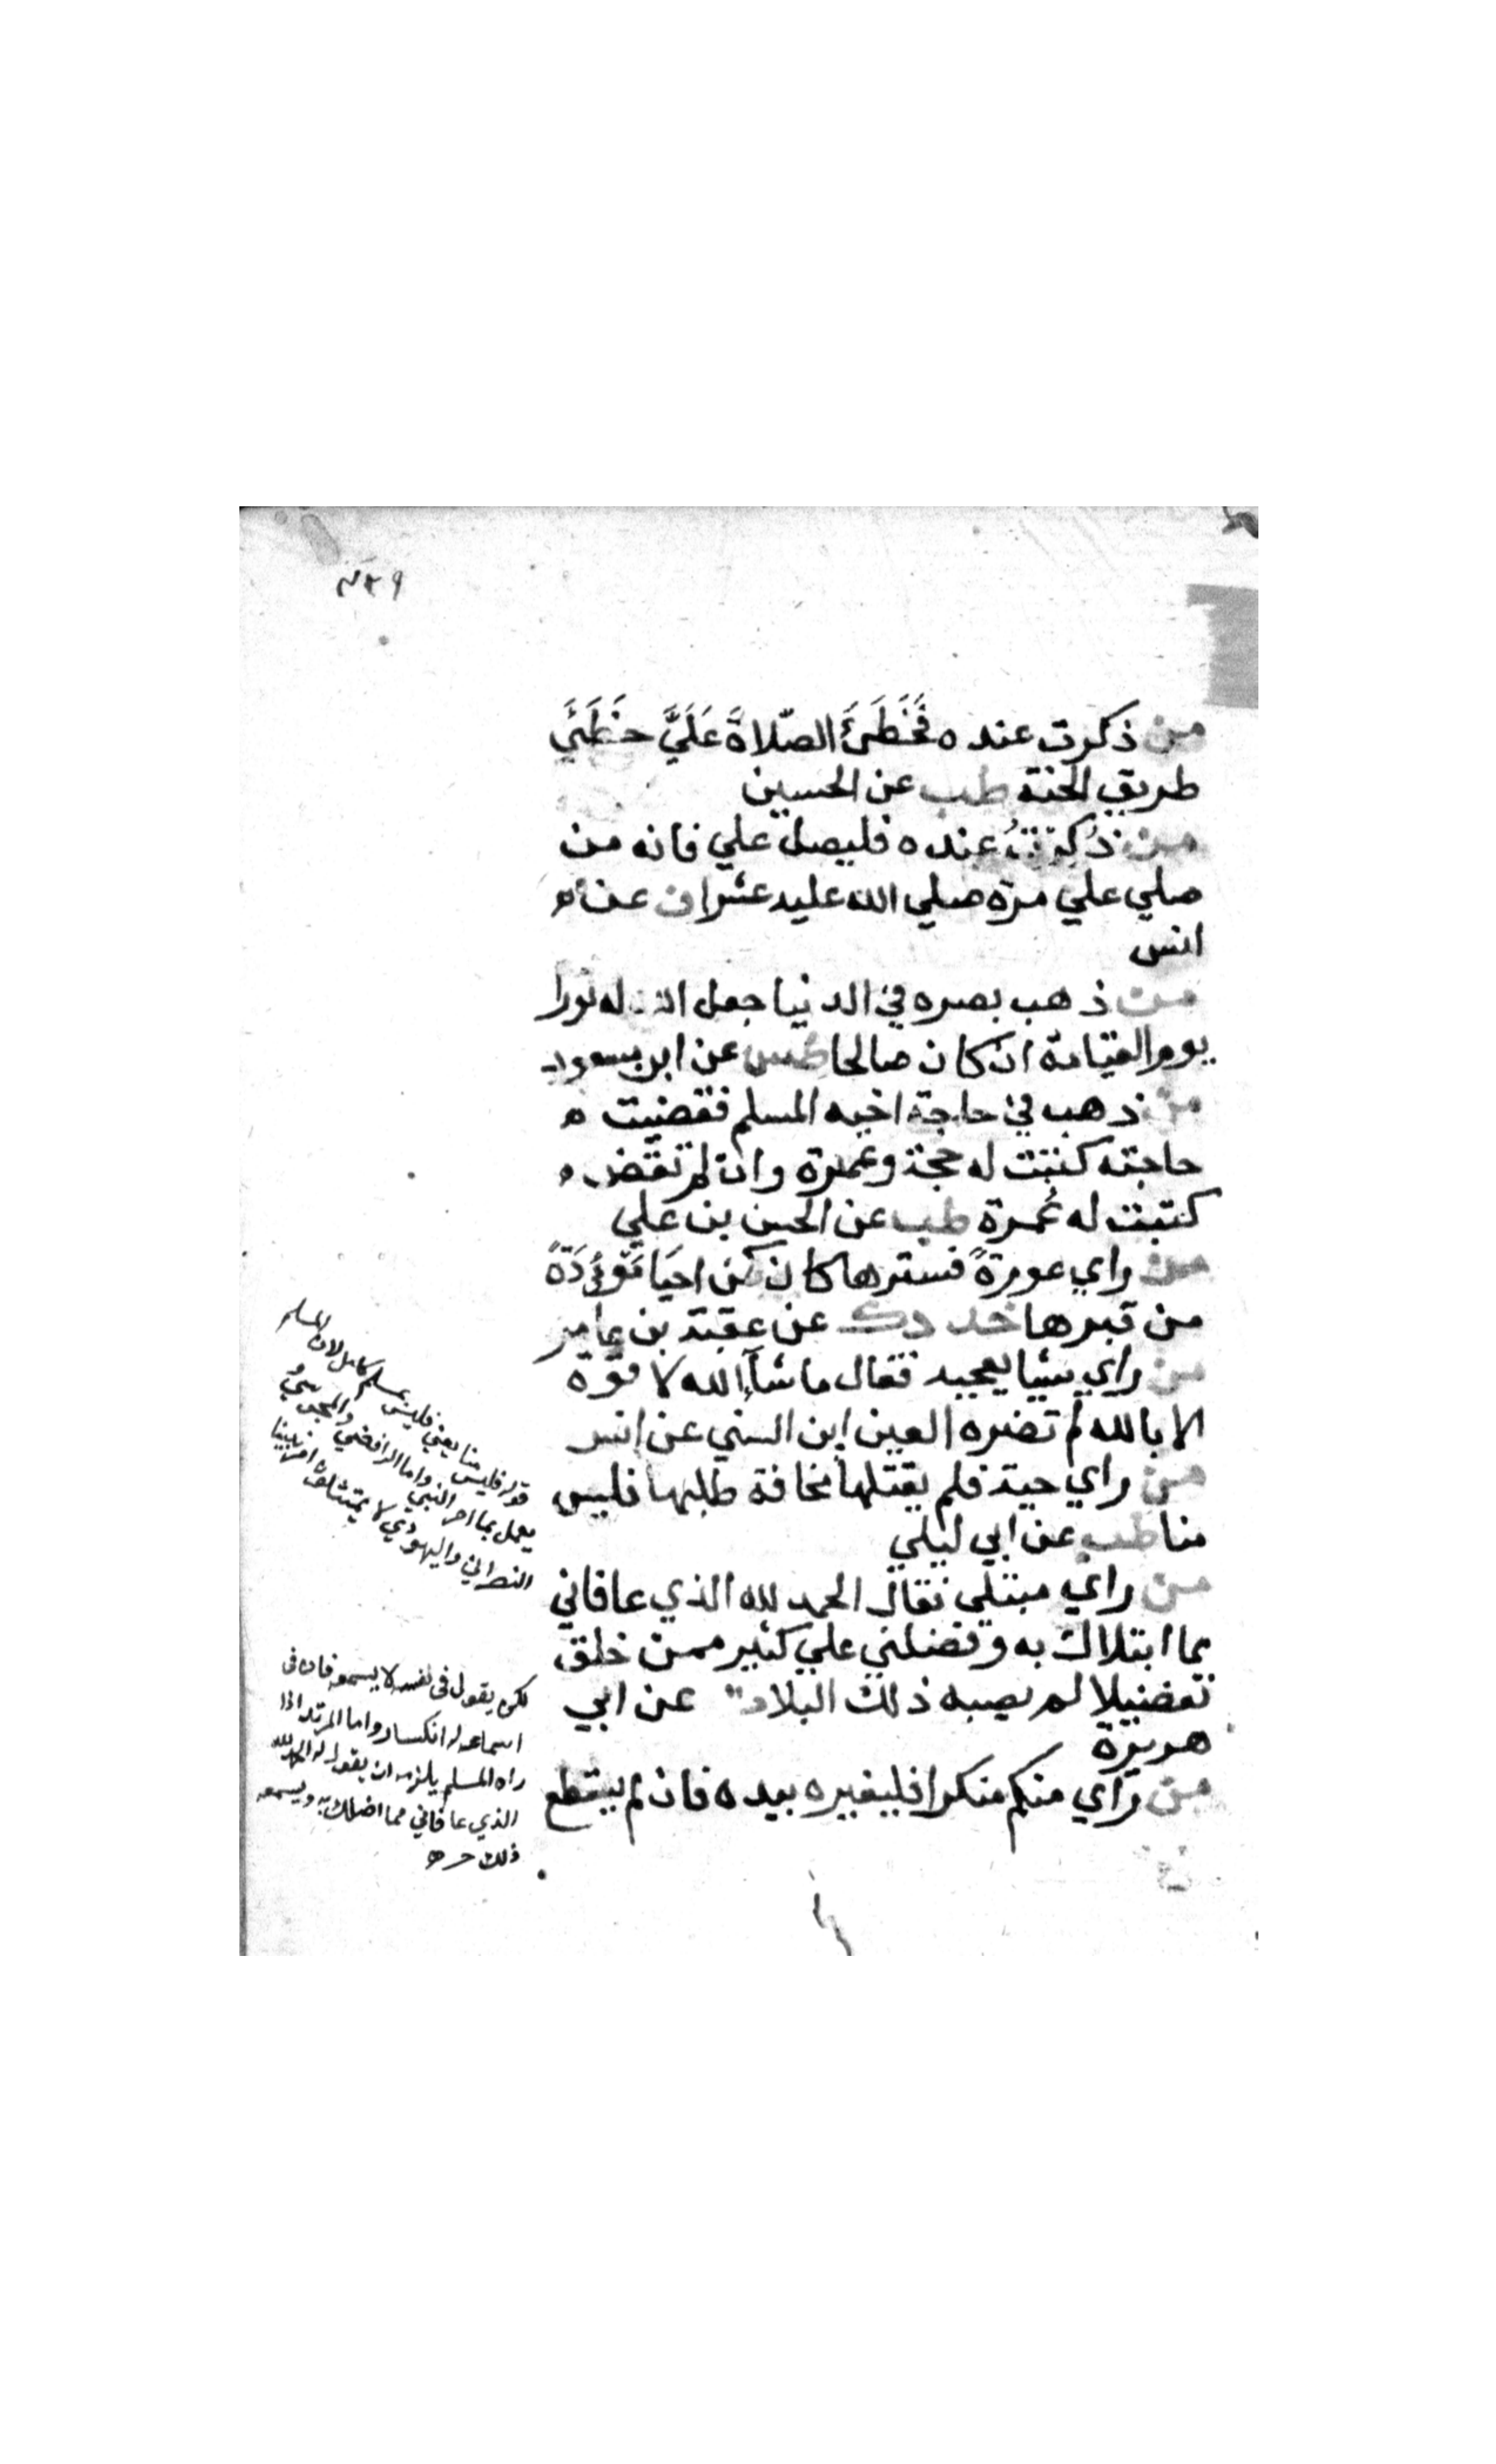 من ذكرت عنده فَخَطَئَ الصّلاةَ عَلَيَّ خَطَئَي
طريق الجنة طب عن الحسين
من ذُكِرْتُ عنده فليصل علي فانه من
صلي علي مرة صلي الله عليه عشرا ن عن
انس
من ذهب بصره في الدنيا جعل الله له نورا
يوم القيامة ان كان صالحا طس عن ابن مسعود
من ذهب في حاجة اخيه المسلم فقضيت
حاجته كتبت له حجة وعمرة وان لم تقض
كتبت له عُمرة طب عن الحسن بن علي
من راي عورةً فسترها كان كمن احيَا مَوْئُدَةً
من قبرها خد د ك عن عقبة بن عامر
من راي شيئا يعجبه فقال ما شآء الله لا قوة
الا بالله لم تضره العين ابن السني عن انس
من راي حية فلم يقتلها مخافة طلبها فليس
منا طب عن ابي ليلي
من راي مبتلي فقال الحمد لله الذي عافاني
مما ابتلاك به وفضلني علي كثير ممن خلق
تفضيلا لم يصبه ذلك البلاء ت عن ابي
هريرة
من راي منكم منكرا فليغيره بيده فان لم يستطع
قوله فليس منا يعني فليس بمسلم كامل لان المسلم
يعمل بما امر النبي واما الرافضي والمجوسي و
النصراني واليهودي لا يمتثلون امر نبينا
لكن يقول في نفسه لا يسمعه فان في
اسماعه له انكسار واما المرتد اذا
راه المسلم يلزمه ان يقول له الحمد لله
الذي عافاني مما اضلك به ويسمعه
ذلك